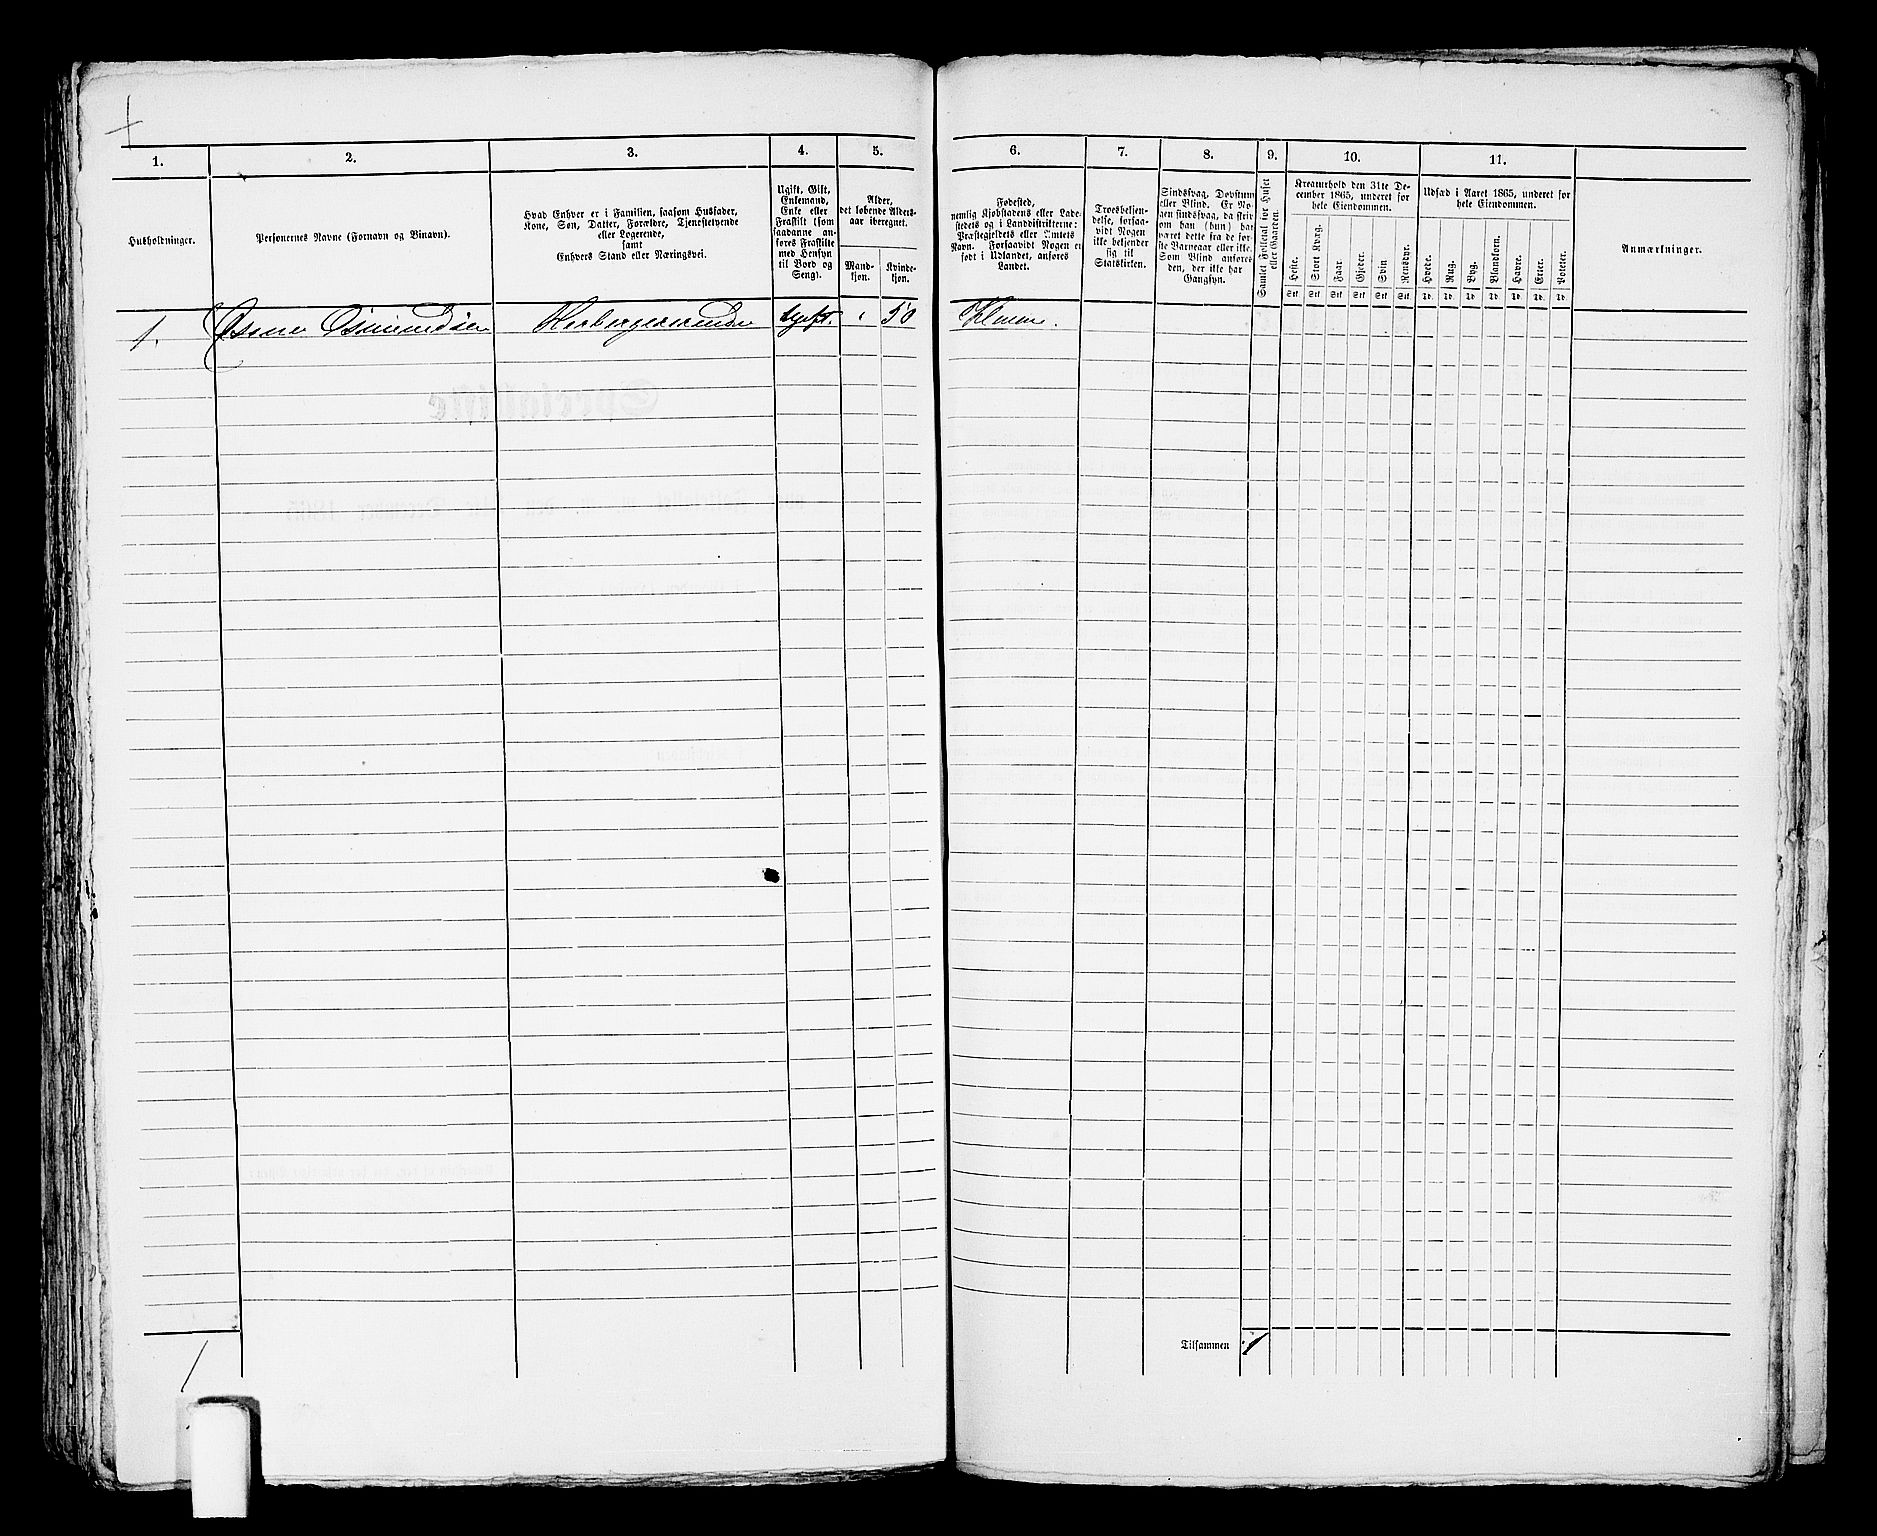 1.
2.
3.
4.
5.
6.
7.
8.
9.
10.
11.
Husholdninger.
Personernes Navne (Fornavn og Binavn).
Hvad Enhver er i Familien, saasom Husfader,
Kone, Søn, Datter, Forældre, Tjenestetyende
eller Logerende,
samt
Enhvers Stand eller Næringsvei.
Ugift, Gift,
Enkemand,
Enke eller
Fraskilt (som
saadanne an-
føres Fraskilte
med Hensyn
til Bord og
Seng).
Alder,
det løbende Alders-
aar iberegnet.
Mand-
kjøn.
Kvinde-
kjøn.
Fødested,
nemlig Kjøbstadens eller Lade-
stedets og i Landdistrikterne:
Præstegjeldets eller Amtets
Navn. Forsaavidt Nogen er
født i Udlandet, anføres
Landet.
Troesbekjen-
delse, forsaa-
vidt Nogen
ikke bekjender
sig til
Statskirken.
Sindssvag, Døvstum
eller Blind. Er No-
gen sindssvag, da skriv
om han (hun) har
været dette fra de før-
ste Barneaar eller ikke.
Som Blind anføres
den, der ikke har
Gangsyn.
Samlet Folketal for Huset
eller Gaarden.
Kreaturhold den 31te De-
cember 1865, underet for
hele Eiendommen.
Heste.
Stort Kvæg.
Faar.
Gjeder.
Svin
Rensdyr.
Stk Stk Stk Stk Stk Stk
Udsæd i Aaret 1865, underet for
hele Eiendommen.
Hvede.
Rug.
Byg.
Blandkorn.
Havre.
Erter.
Poteter.
Td. Td. Td. Td. Td. Td. Td.
Anmærkninger.
1. Osmundsen Herbergererende Ugift. 50
Tilsammen 1